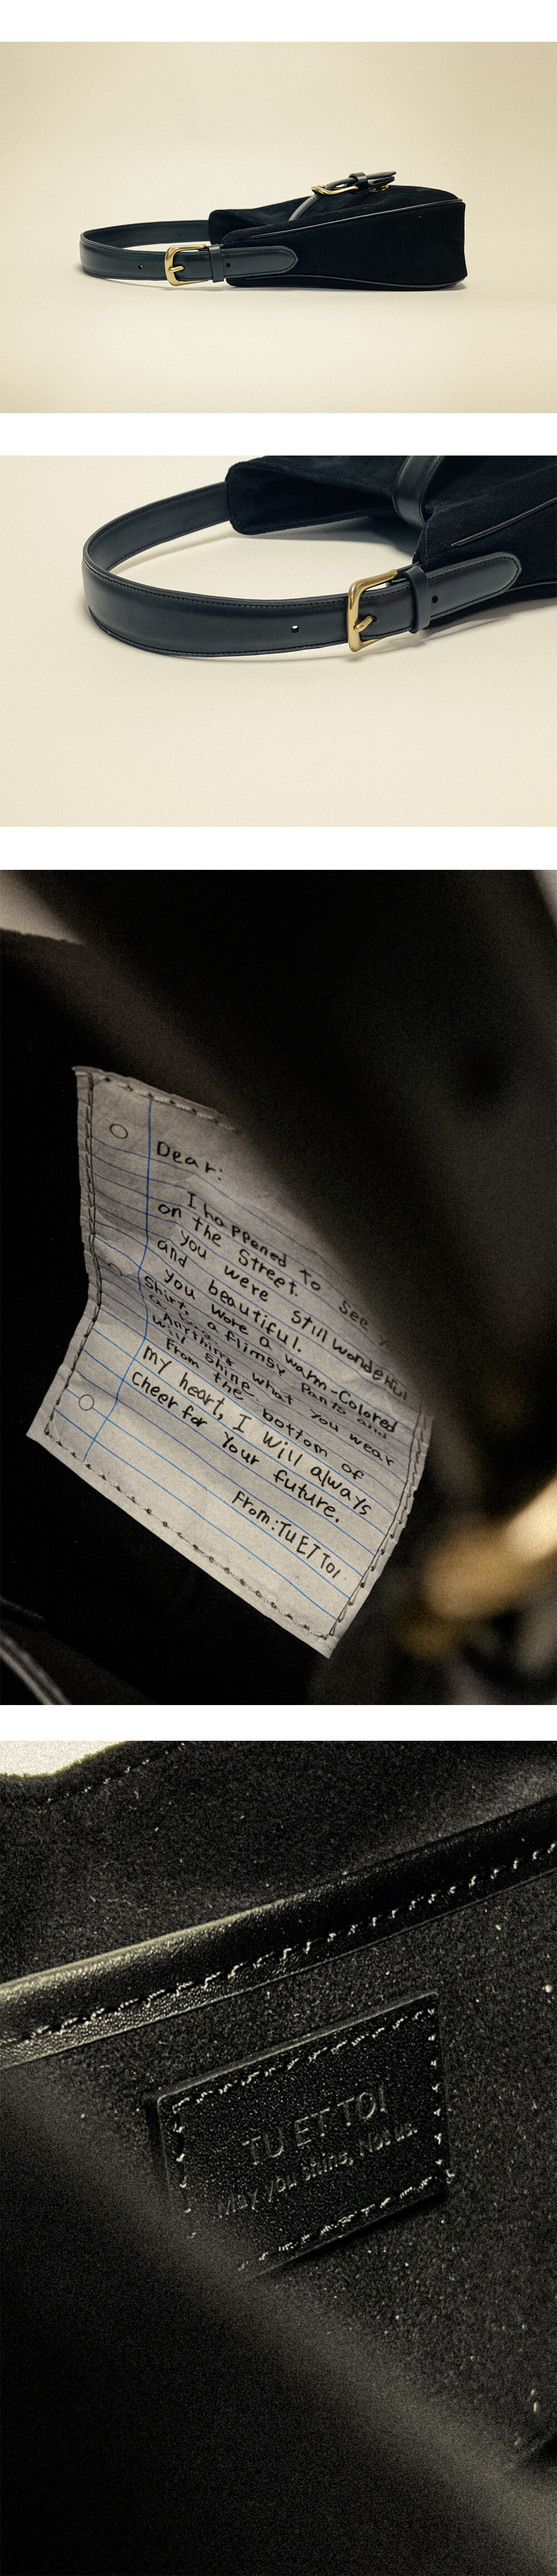 Dear:
I happened to see
on the Street.
you were still wonderful
and beautiful.
you wore a warm-Colored
Shirt, a flimsy Pants and
Anything what you wear
will shine
From the bottom of
my heart, I will always
Cheer for Your future.
From:TUETTOI
TU ET TOI
May you shine, Not us.